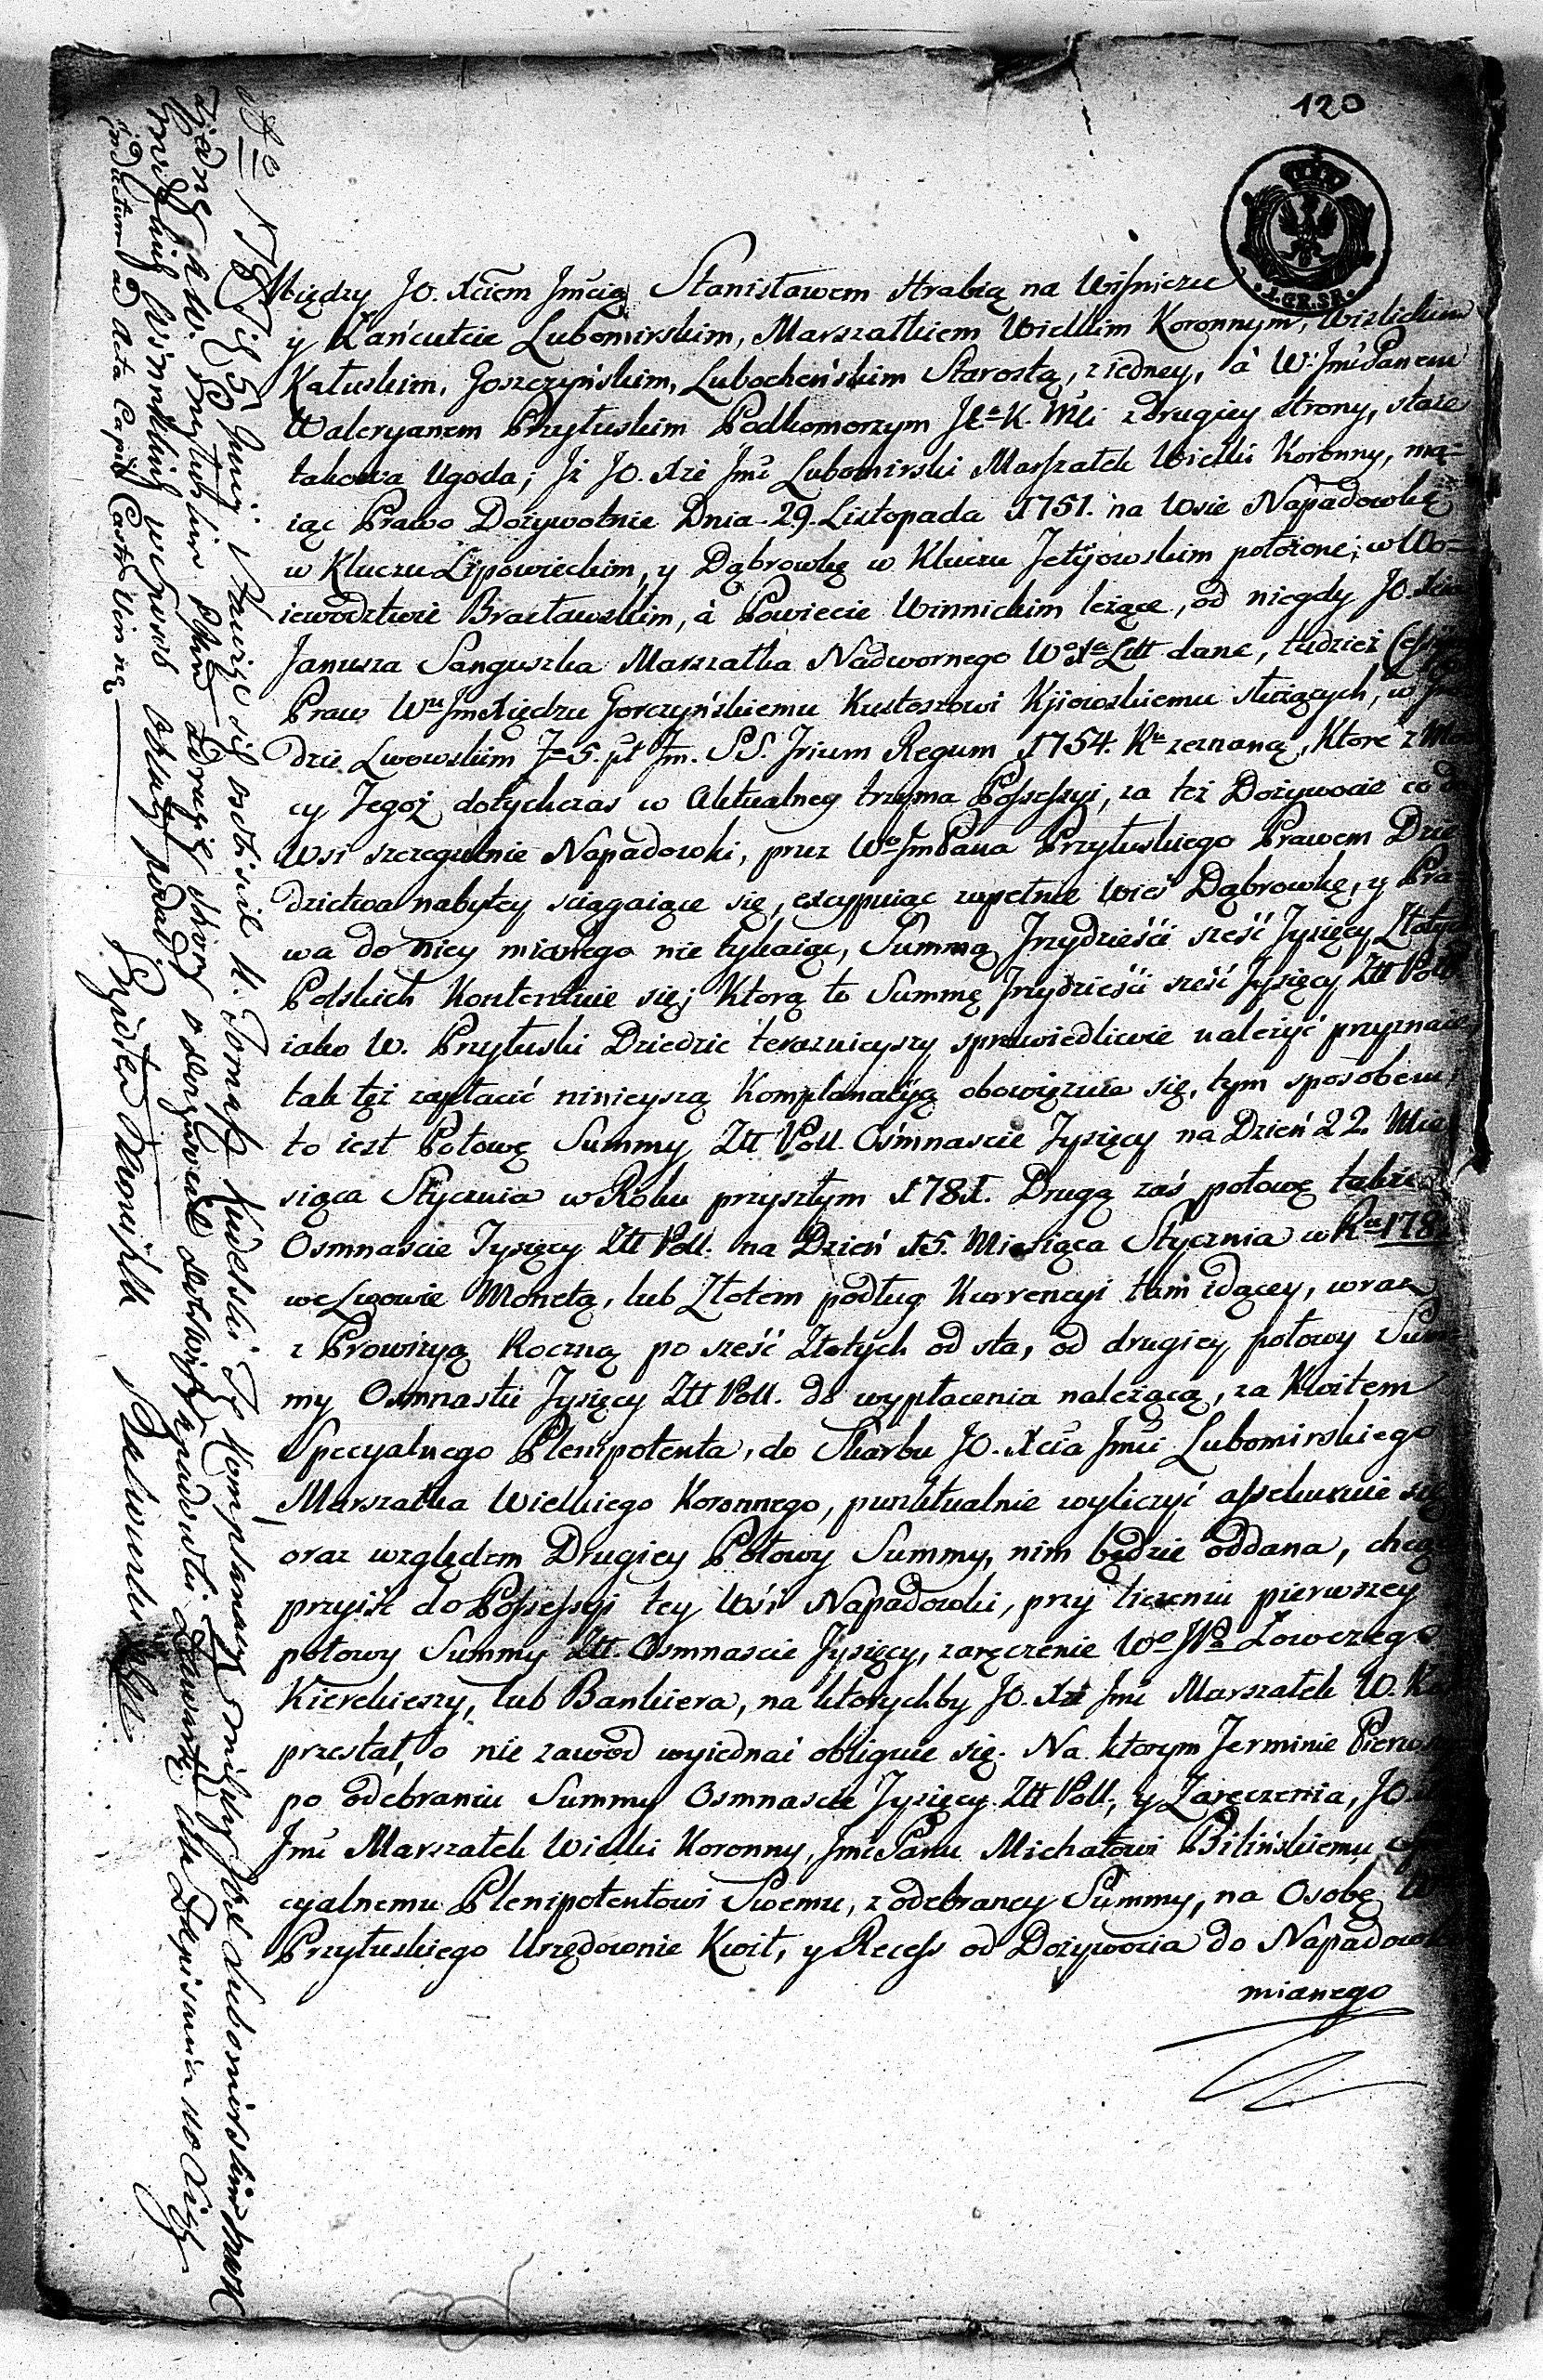 120
I.GR.SR.
Między JO. Xciem Jmcią Stanisławem Hrabią na Wiśniczu
y Łańcucie Lubomirskim, Marszałkiem Wielkim Koronnym, Wislickim
Kałuskim, Goszczyńskim, Lubocheńskim Starostą, z iedney, à W: Jmć Panem
Waleryanem Przyłuskim Podkomorzym J K. Mći z drugiey strony, staie
takowa Ugoda; Iż JO. Xże Jmć Lubomirski Marszałek Wielki Koronny, ma=
iąc Prawo Dożywotnie Dnia 29. Listopada 1751. na Wsie Napadowkę
w Kluczu Lipowieckim, y Dąbrowkę w Kluczu Jetÿowskim położone; w Wo=
iewodztwie Bracławskim, à Powiecie Winnickim leżące, od niegdy JO. Xcia
Janusza Sanguszka Marszałka Nadwornego Wo Xa Litt dane, tudzież Cessyą
Praw Wu Jm Xiędzu Gorczyńskiemu Kustoszowi Kijowskiemu służących, w
dzie Lwowskim 5. pt Fm. SS. Trium Regum 1754. Ru zeznaną, Które z Mo
cy Tegoż dotychczas w Aktualney trzyma Possessyi, za też Dożywocie co do
Wsi szczegulnie Napadowki, przez Wo Jm Pana Przyłuskiego Prawem Dzie
dzictwa nabytey sciągaiące się, excypuiąc zupełnie Wieś Dąbrowkę, y Pra=
wa do niey mianego nie tykaiąc, Summą Trzydzieści sześć Tysięcy Złotych
Polskich Kontentuie się; Ktorą to Summę Trzydzieści sześć Tysięcy Ztt Poll
iako W. Przyłuski Dziedzic terażnieyszy sprawiedliwie należyć przyznaie,
tak też zapłacić ninieyszą Komplanacyą obowięzuie się, tym sposobem,
to iest Połowę Summy Ztt Poll. Ośmnascie Tysięcy na Dzień 22. Mie
siąca Stycznia w Roku przyszłym 1781. Drugą zaś połowę także
Osmnascie Tysięcy Ztt Poll. na Dzień 15. Miesiąca Stycznia w Ru 178
we Lwowie Monetą, lub Złotem podług Kurrencyi tam idącey, wraz
z Prowizyą Roczną po sześć Złotych od sta, od drugiey połowy Sum=
my Osmnastu Tysięcy Ztt Poll. do wypłacenia należącą, za Kwitem
Specyalnego Plenipotenta, do Skarbu JO. Xcia Jmći Lubomirskiego
Marszałka Wielkiego Koronnego, punktualnie wyliczyć assekuruie się
oraz względem Drugiey Połowy Summy, nim będzie oddana, chcąc
przyiść do Possessyi tey Wsi Napadowki, przy liczeniu pierwszey
połowy Summy Ztt. Osmnascie Tysięcy, zaręczenie Wo JPa Łowczego
Kierekieszy, lub Bankiera, na ktorychby JO. Xże Jmć Marszałek W. Ko
przestał, o nie zawod wyiednać obliguie się. Na ktorym Terminie Pierwszym
po odebraniu Summy Osmnascie Tysięcy Ztt Poll, y Zaręczenia, JO. Xże
Jmć Marszałek Wielki Koronny, Jmć Panu Michałowi Bilińskiemu Spe
cyalnemu Plenipotentowi Swemu, z odebraney Summy, na Osobę W
Przyłuskiego Urzędownie Kwit, y Recess od Dożywocia do Napadowki
mianego
1781 5 Junij Stawiąc się osobiscie U. Tomasz Kudelski Tę Komplanacyą między JOXem Lubomirskim Mark
W. Przyłuskim Pkm z drugiey strony
Winnickim
Inductum ad Acta Capit Castr Vin